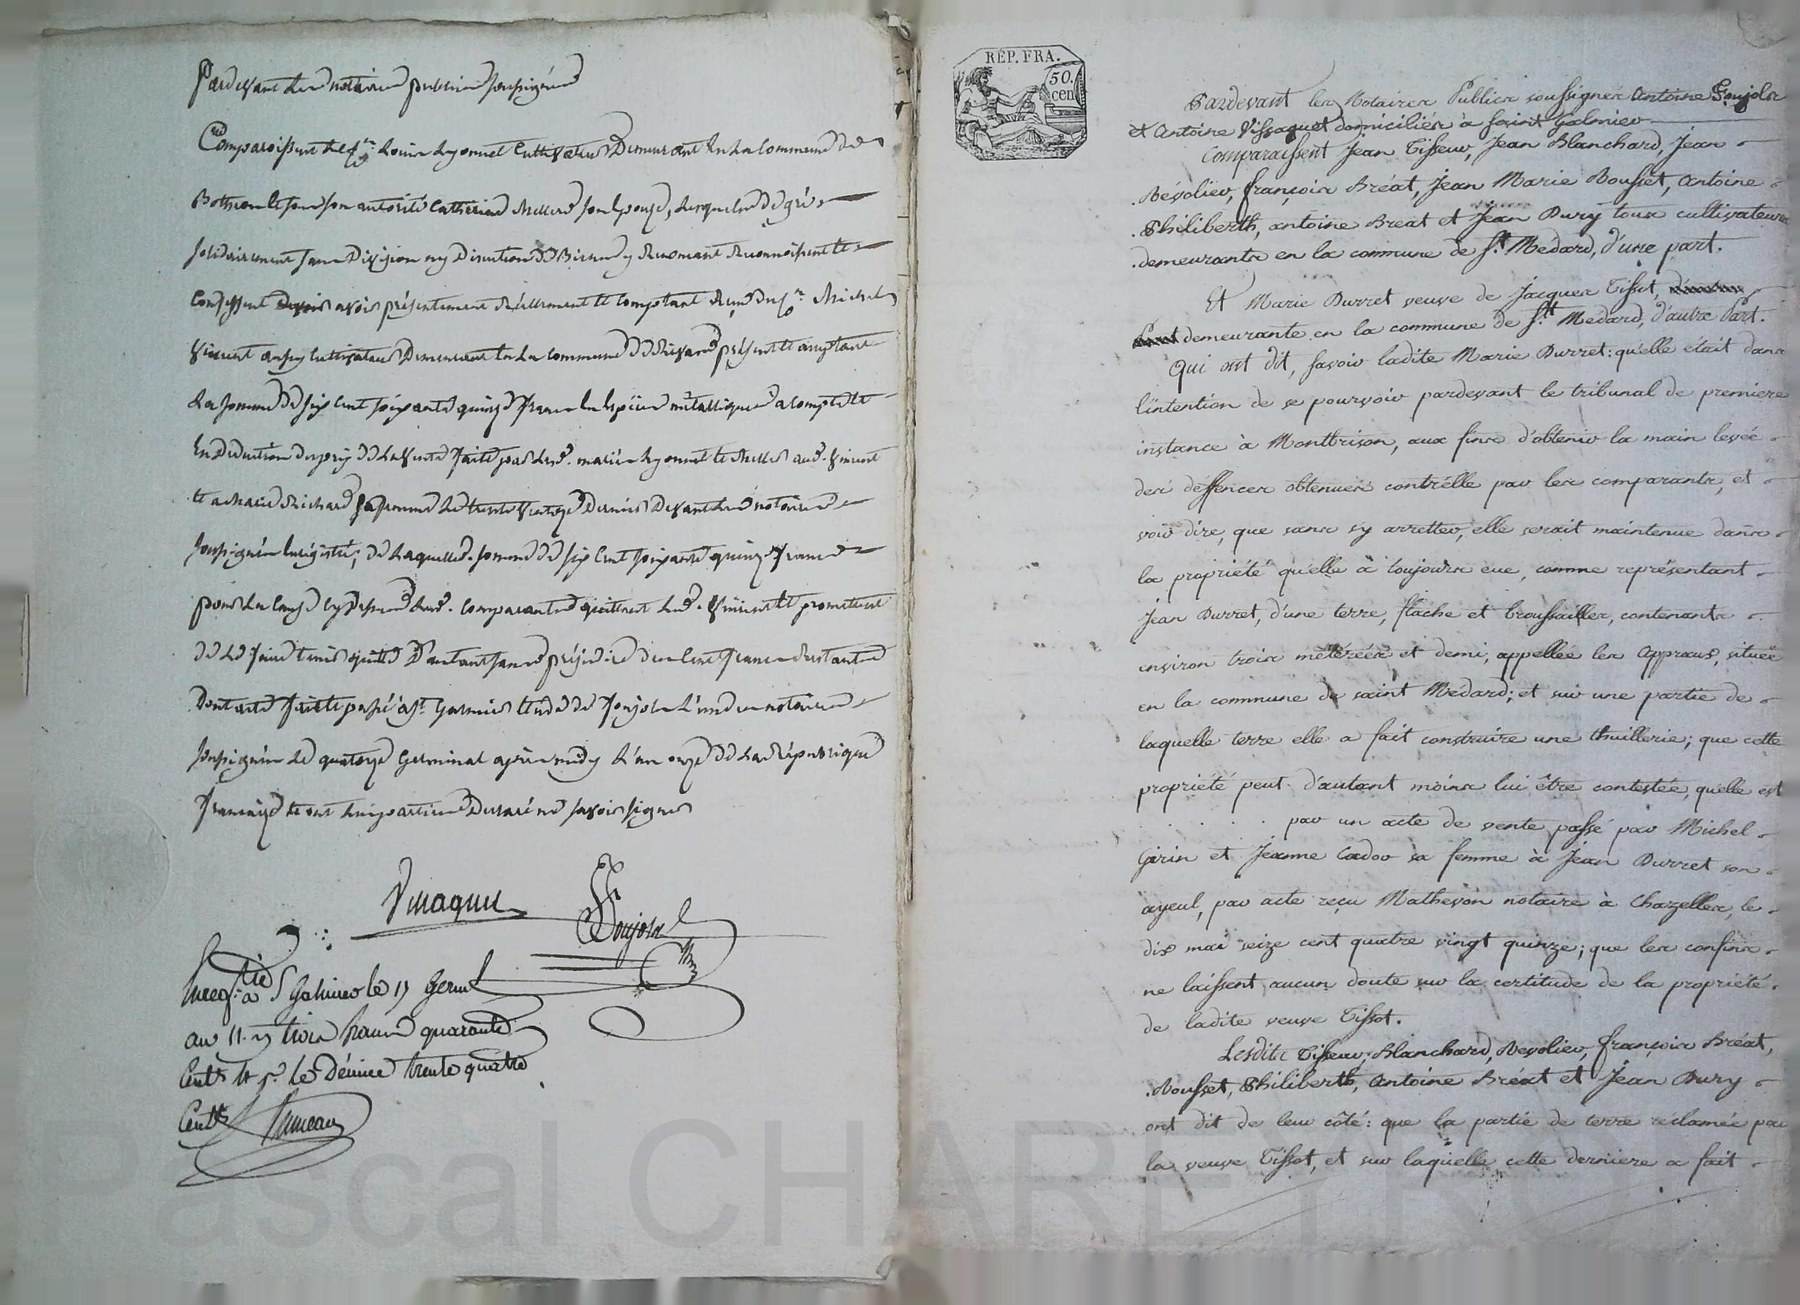 Pardevant les notaires publics soussignés
Comparoissent le Cen Louis Lyonnet Cultivateur Demeurant En la Commune de
et sous son autorité Catherine son Epouse, lesquels de gré
solidairement sans Division ny Discution de Biens y Renonçant Reconnoissent et
Confessent avoir présentement Réellement et Comptant Reçu du Cen Michel
Vincent Cultivateur Demeurant En La Commune de présent et acceptant
La somme de six Cent soixante quinze francs En Espèces métalliques a Compte et
En Déduction du prix de la Vente faite par les d. mariés Lyonnet et aud. Vincent
et a Marie Richard sa femme le trente Dernier Devant les notaires
soussignés Enregistré; de Laquelle somme de six Cent soixante quinze francs
pour La Cause Cy Dessus les d. Comparants quittent led. Vincent et promettent
de Le faire tenir quitte D'autant sans préjudice de Cent francs Restants
Dont acte fait et passé à St. Galmier Etude de Goujols L'un des notaires
soussignés Le quatorze Germinal après midy L'an onze de La République
française et ont Les parties Déclaré ne savoir signer
Vissaguet Goujols
Enregtré à St Galmier le 15 Germl
an 11. Rç trois francs quarante
Centes et pr le Décime trente quatre
Centes
RÉP. FRA.
50.
cen
Pardevant les Notaires Publics soussignés Antoine Goujols
et Antoine Vissaguet domiciliés à saint Galmier
Comparaissent Jean Tisseur, Jean Blanchard, Jean
Révolier, françois Bréat, Jean Marie Rousset, Antoine
Philiberth, antoine Breat et Jean Dury tous cultivateurs
demeurants en la commune de St. Medard, d'une part.
Et Marie Durret veuve de Jacques Tissot,
demeurante en la commune de St. Medard, d'autre Part.
Qui ont dit, savoir ladite Marie Durret: qu'elle était dans
l'intention de se pourvoir pardevant le tribunal de premiere
instance à Montbrison, aux fins d'obtenir la main levée
des déffences obtenues contr'elle par les comparants, et
voir dire, que sans s'y arretter, elle serait maintenue dans
la propriété qu'elle à toujours eue, comme représentant
Jean Durret, d'une terre, flache et broussailles, contenants
environ trois mettérées et demi, appellée les Appraus, située
en la commune de saint Medard; et sur une partie de
laquelle terre elle a fait construire une thuillerie; que cette
propriété peut d'autant moins lui être contestée, quelle est
par un acte de vente passé par Michel
Girin et Jeanne Cador sa femme à Jean Durret son
ayeul, par acte reçu Mathevon notaire à Chazelles, le
dix mai seize cent quatre vingt quinze; que les confins
ne laissent aucun doute sur la certitude de la propriété
de ladite veuve Tissot.
Lesdits Tisseur, Blanchard, Revolier, françois Bréat,
Rousset, Philiberth, Antoine Bréat et Jean Dury
ont dit de leur côté: que la partie de terre réclamée par
la veuve Tissot, et sur laquelle cette derniere a fait
Pascal CHAREYRO